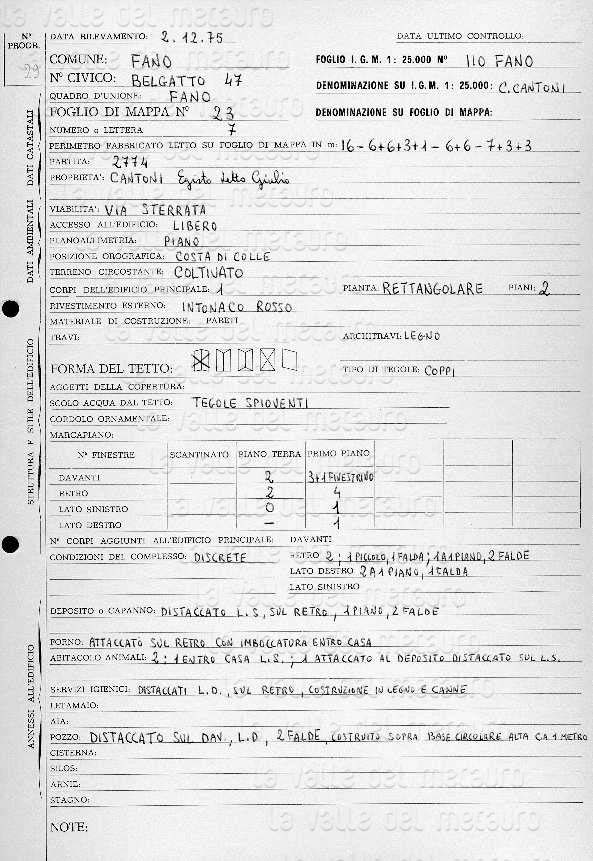 N° PROGR. 29
DATA RILEVAMENTO: 2.12.75 DATA ULTIMO CONTROLLO:
COMUNE: FANO FOGLIO I.G.M. 1: 25.000 N° 110 FANO
N° CIVICO: BELGATTO 47 DENOMINAZIONE SU I.G.M. 1: 25.000: C.CANTONI
QUADRO D'UNIONE: FANO
FOGLIO DI MAPPA N° 23 DENOMINAZIONE SU FOGLIO DI MAPPA:
NUMERO o LETTERA 7
PERIMETRO FABBRICATO LETTO SU FOGLIO DI MAPPA IN m: 16-6+6+3+1-6+6-7+3+3
PARTITA: 2774
PROPRIETA': CANTONI Egisto detto Giulio
VIABILITA': VIA STERRATA
ACCESSO ALL'EDIFICIO: LIBERO
PLANOALTIMETRIA: PIANO
POSIZIONE OROGRAFICA: COSTA DI COLLE
TERRENO CIRCOSTANTE: COLTIVATO
CORPI DELL'EDIFICIO PRINCIPALE: 1 PIANTA: RETTANGOLARE PIANI: 2
RIVESTIMENTO ESTERNO: INTONACO ROSSO
MATERIALE DI COSTRUZIONE: PARETI
TRAVI: ARCHITRAVI: LEGNO
FORMA DEL TETTO: TIPO DI TEGOLE: COPPI
AGGETTI DELLA COPERTURA:
SCOLO ACQUA DAL TETTO: TEGOLE SPIOVENTI
CORDOLO ORNAMENTALE:
MARCAPIANO:
N° FINESTRE SCANTINATO PIANO TERRA PRIMO PIANO
DAVANTI 2 3+1 FINESTRINO
RETRO 2 4
LATO SINISTRO 0 1
LATO DESTRO – 1
N° CORPI AGGIUNTI ALL'EDIFICIO PRINCIPALE: DAVANTI
CONDIZIONI DEL COMPLESSO: DISCRETE RETRO 2; 1 PICCOLO, 1 FALDA; 1 A 1 PIANO, 2 FALDE
LATO DESTRO 2 A 1 PIANO, 1 FALDA
LATO SINISTRO
DEPOSITO o CAPANNO: DISTACCATO L.S, SUL RETRO, 1 PIANO, 2 FALDE
FORNO: ATTACCATO SUL RETRO CON IMBOCCATURA ENTRO CASA
ABITACOLO ANIMALI: 2: 1 ENTRO CASA L.S.; 1 ATTACCATO AL DEPOSITO DISTACCATO SUL L.S.
SERVIZI IGIENICI: DISTACCATI L.D., SUL RETRO, COSTRUZIONE IN LEGNO E CANNE
LETAMAIO:
AIA:
POZZO: DISTACCATO SUL DAV., L.D, 2 FALDE, COSTRUITO SOPRA BASE CIRCOLARE ALTA CA 1 METRO
CISTERNA:
SILOS:
ARNIE:
STAGNO:
NOTE:
DATI CATASTALI
DATI AMBIENTALI
STRUTTURA E STILE DELL'EDIFICIO
ANNESSI ALL'EDIFICIO
la valle del metauro